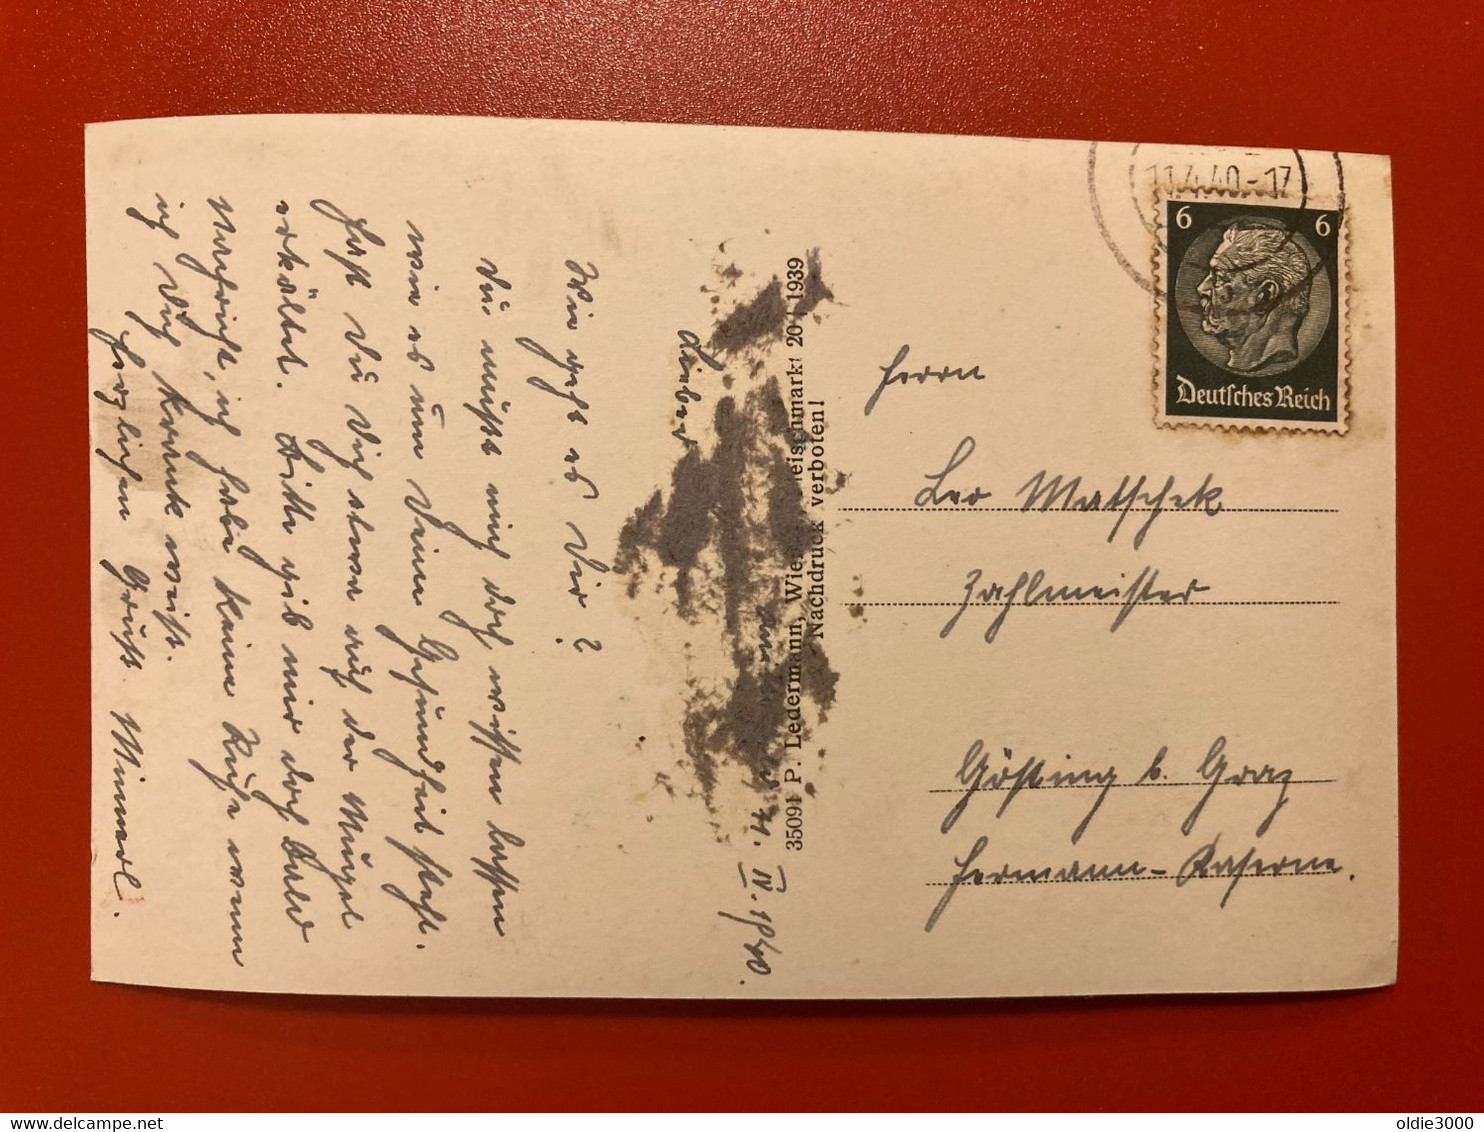 11.4.40-17
6 6
Deutsches Reich
Herrn
Leo Matschek
Zahlmeister
Gösting b. Graz
Hermann-Kaserne.
35091 P. Ledermann, Wien 1939
Nachdruck verboten!
11. IV. 1940.
Lieber
Wie geht es Dir?
Du mußt mich doch wissen lassen
wie es um Deine Gesundheit steht.
Hast Du Dich etwa auf der Mugel
erkältet. Bitte gib mir doch bald
Nachricht, ich habe keine Ruhe wenn
ich Dich krank weiß.
Herzlichen Gruß Minnerl.
delcampe.net
oldie3000